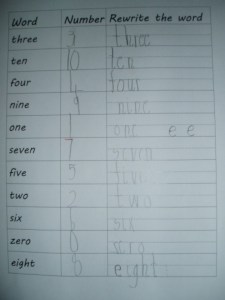 Word Number Rewrite the word
three 3 three
ten 10 ten
four 4 four
nine 9 nine
one 1 one e e
seven 7 seven
five 5 five
two 2 two
six 6 six
zero 0 zero
eight 8 eight